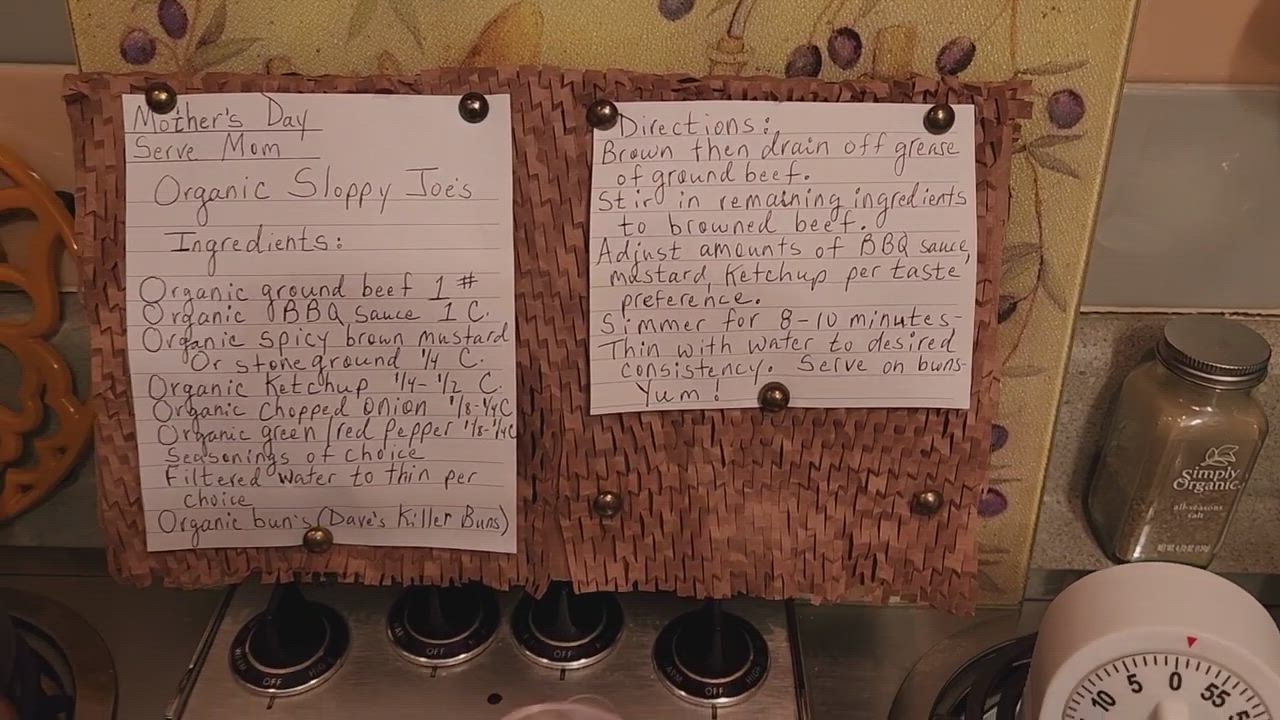 Mother's Day
Serve Mom
Organic Sloppy Joe's
Ingredients:
Organic ground beef 1 #
Organic BBQ Sauce 1 C.
Organic Spicy brown mustard
Or stoneground 1/4 C.
Organic Ketchup 1/4-1/2 C.
Organic Chopped Onion 1/8-1/4C
Organic green/red Pepper 1/8-1/4C
Seasonings of choice
Filtered Water to thin per
choice
Organic bun's (Dave's Killer Buns)
Directions:
Brown then drain off grease
of ground beef.
Stir in remaining ingredients
to browned beef.
Adjust amounts of BBQ sauce,
mustard, Ketchup per taste
preference.
Simmer for 8-10 minutes-
Thin with water to desired
consistency. Serve on buns-
Yum!
Simply
Organic
all-seasons
salt
NET WT 4.73 OZ (134g)
WARM OFF HIGH
OFF
OFF
WARM OFF HIGH
10 5 0 55